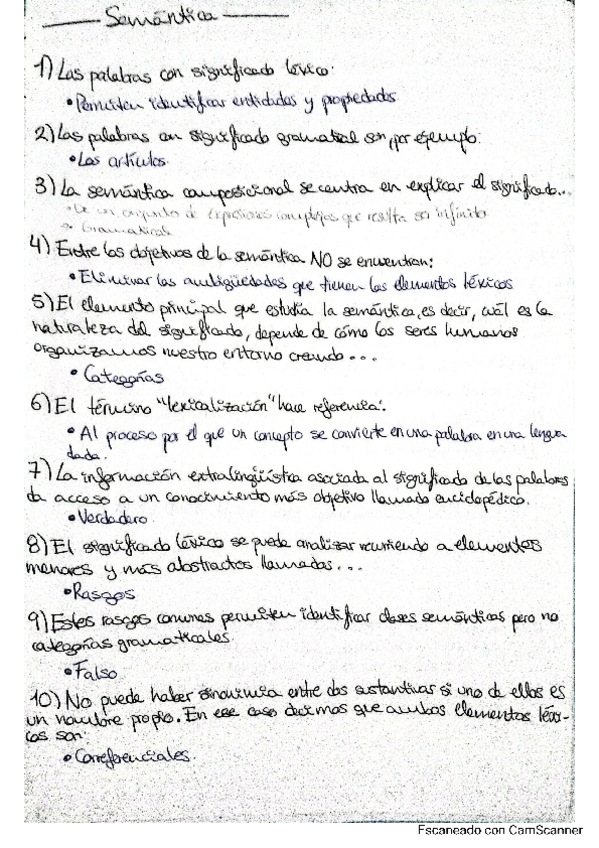 Semántica
1) Las palabras con significado léxico:
• Permiten identificar entidades y propiedades
2) Las palabras con significado gramatical son, por ejemplo:
• Los artículos
3) La semántica composicional se centra en explicar el significado...
• De un conjunto de expresiones complejas que resulta ser infinito
• Gramatical
4) Entre los objetivos de la semántica NO se encuentran:
• Eliminar las ambigüedades que tienen los elementos léxicos
5) El elemento principal que estudia la semántica, es decir, cuál es la
naturaleza del significado, depende de cómo los seres humanos
organizamos nuestro entorno creando...
• Categorías
6) El término "lexicalización" hace referencia:
• Al proceso por el que un concepto se convierte en una palabra en una lengua
dada.
7) La información extralingüística asociada al significado de las palabras
da acceso a un conocimiento más objetivo llamado enciclopédico.
• Verdadero
8) El significado léxico se puede analizar recurriendo a elementos
menores y más abstractos llamados...
• Rasgos
9) Estos rasgos comunes permiten identificar clases semánticas pero no
categorías gramaticales.
• Falso
10) No puede haber sinonimia entre dos sustantivos si uno de ellos es
un nombre propio. En ese caso decimos que ambos elementos léxi-
cos son:
• Correferenciales.
Escaneado con CamScanner